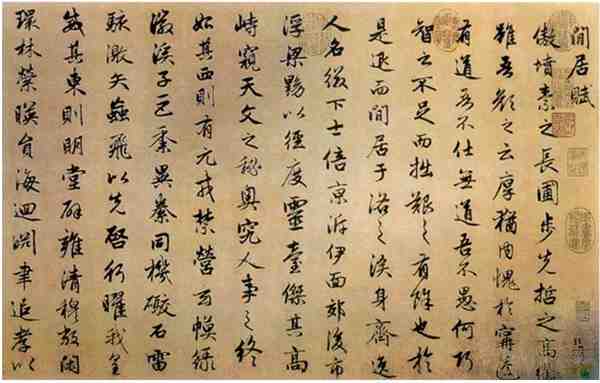 閒居賦
傲墳素之長圃步先哲之高衢
雖吾顏之云厚猶內愧於甯蘧
有道吾不仕無道吾不愚何巧
智之不足而拙艱之有餘也於
是退而閒居于洛之涘身齊逸
人名綴下士倍京泝伊面郊後市
浮梁黝以經度靈臺傑其高
峙窺天文之秘奧究人事之終
始其西則有元戎禁營玄幙綠
徽溪子巨黍異絭同機礮石雷
駭激矢蝱飛以先啓行曜我皇
威其東則明堂辟雍清穆敞閑
環林縈暎員海迴淵聿追孝以